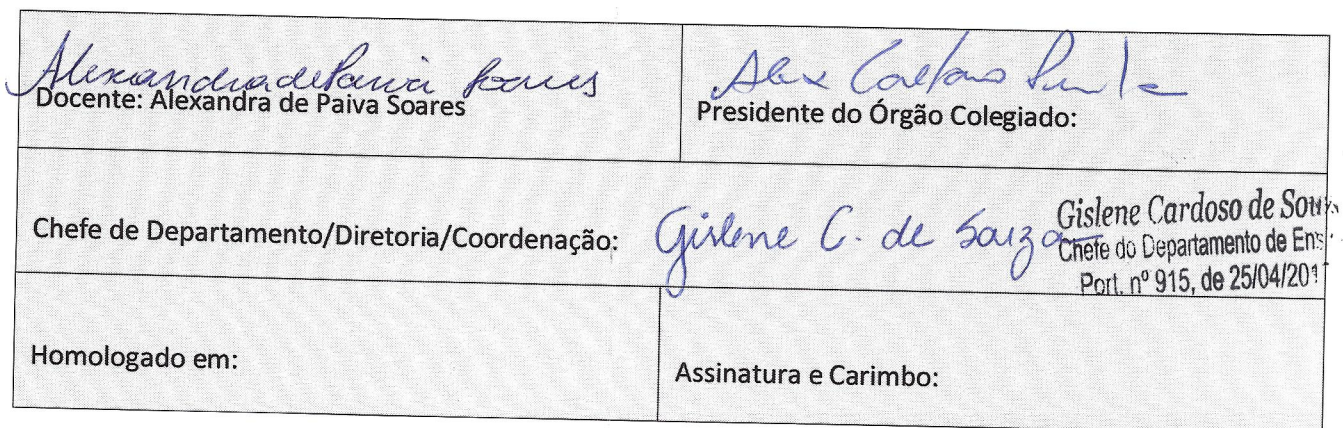 Alexandra de Paiva Soares
Docente: Alexandra de Paiva Soares
Alex Caetano
Presidente do Órgão Colegiado:
Chefe de Departamento/Diretoria/Coordenação:
Gislene C. de Souza
Gislene Cardoso de Sou
Chefe do Departamento de Ens
Port. nº 915, de 25/04/201
Homologado em:
Assinatura e Carimbo: